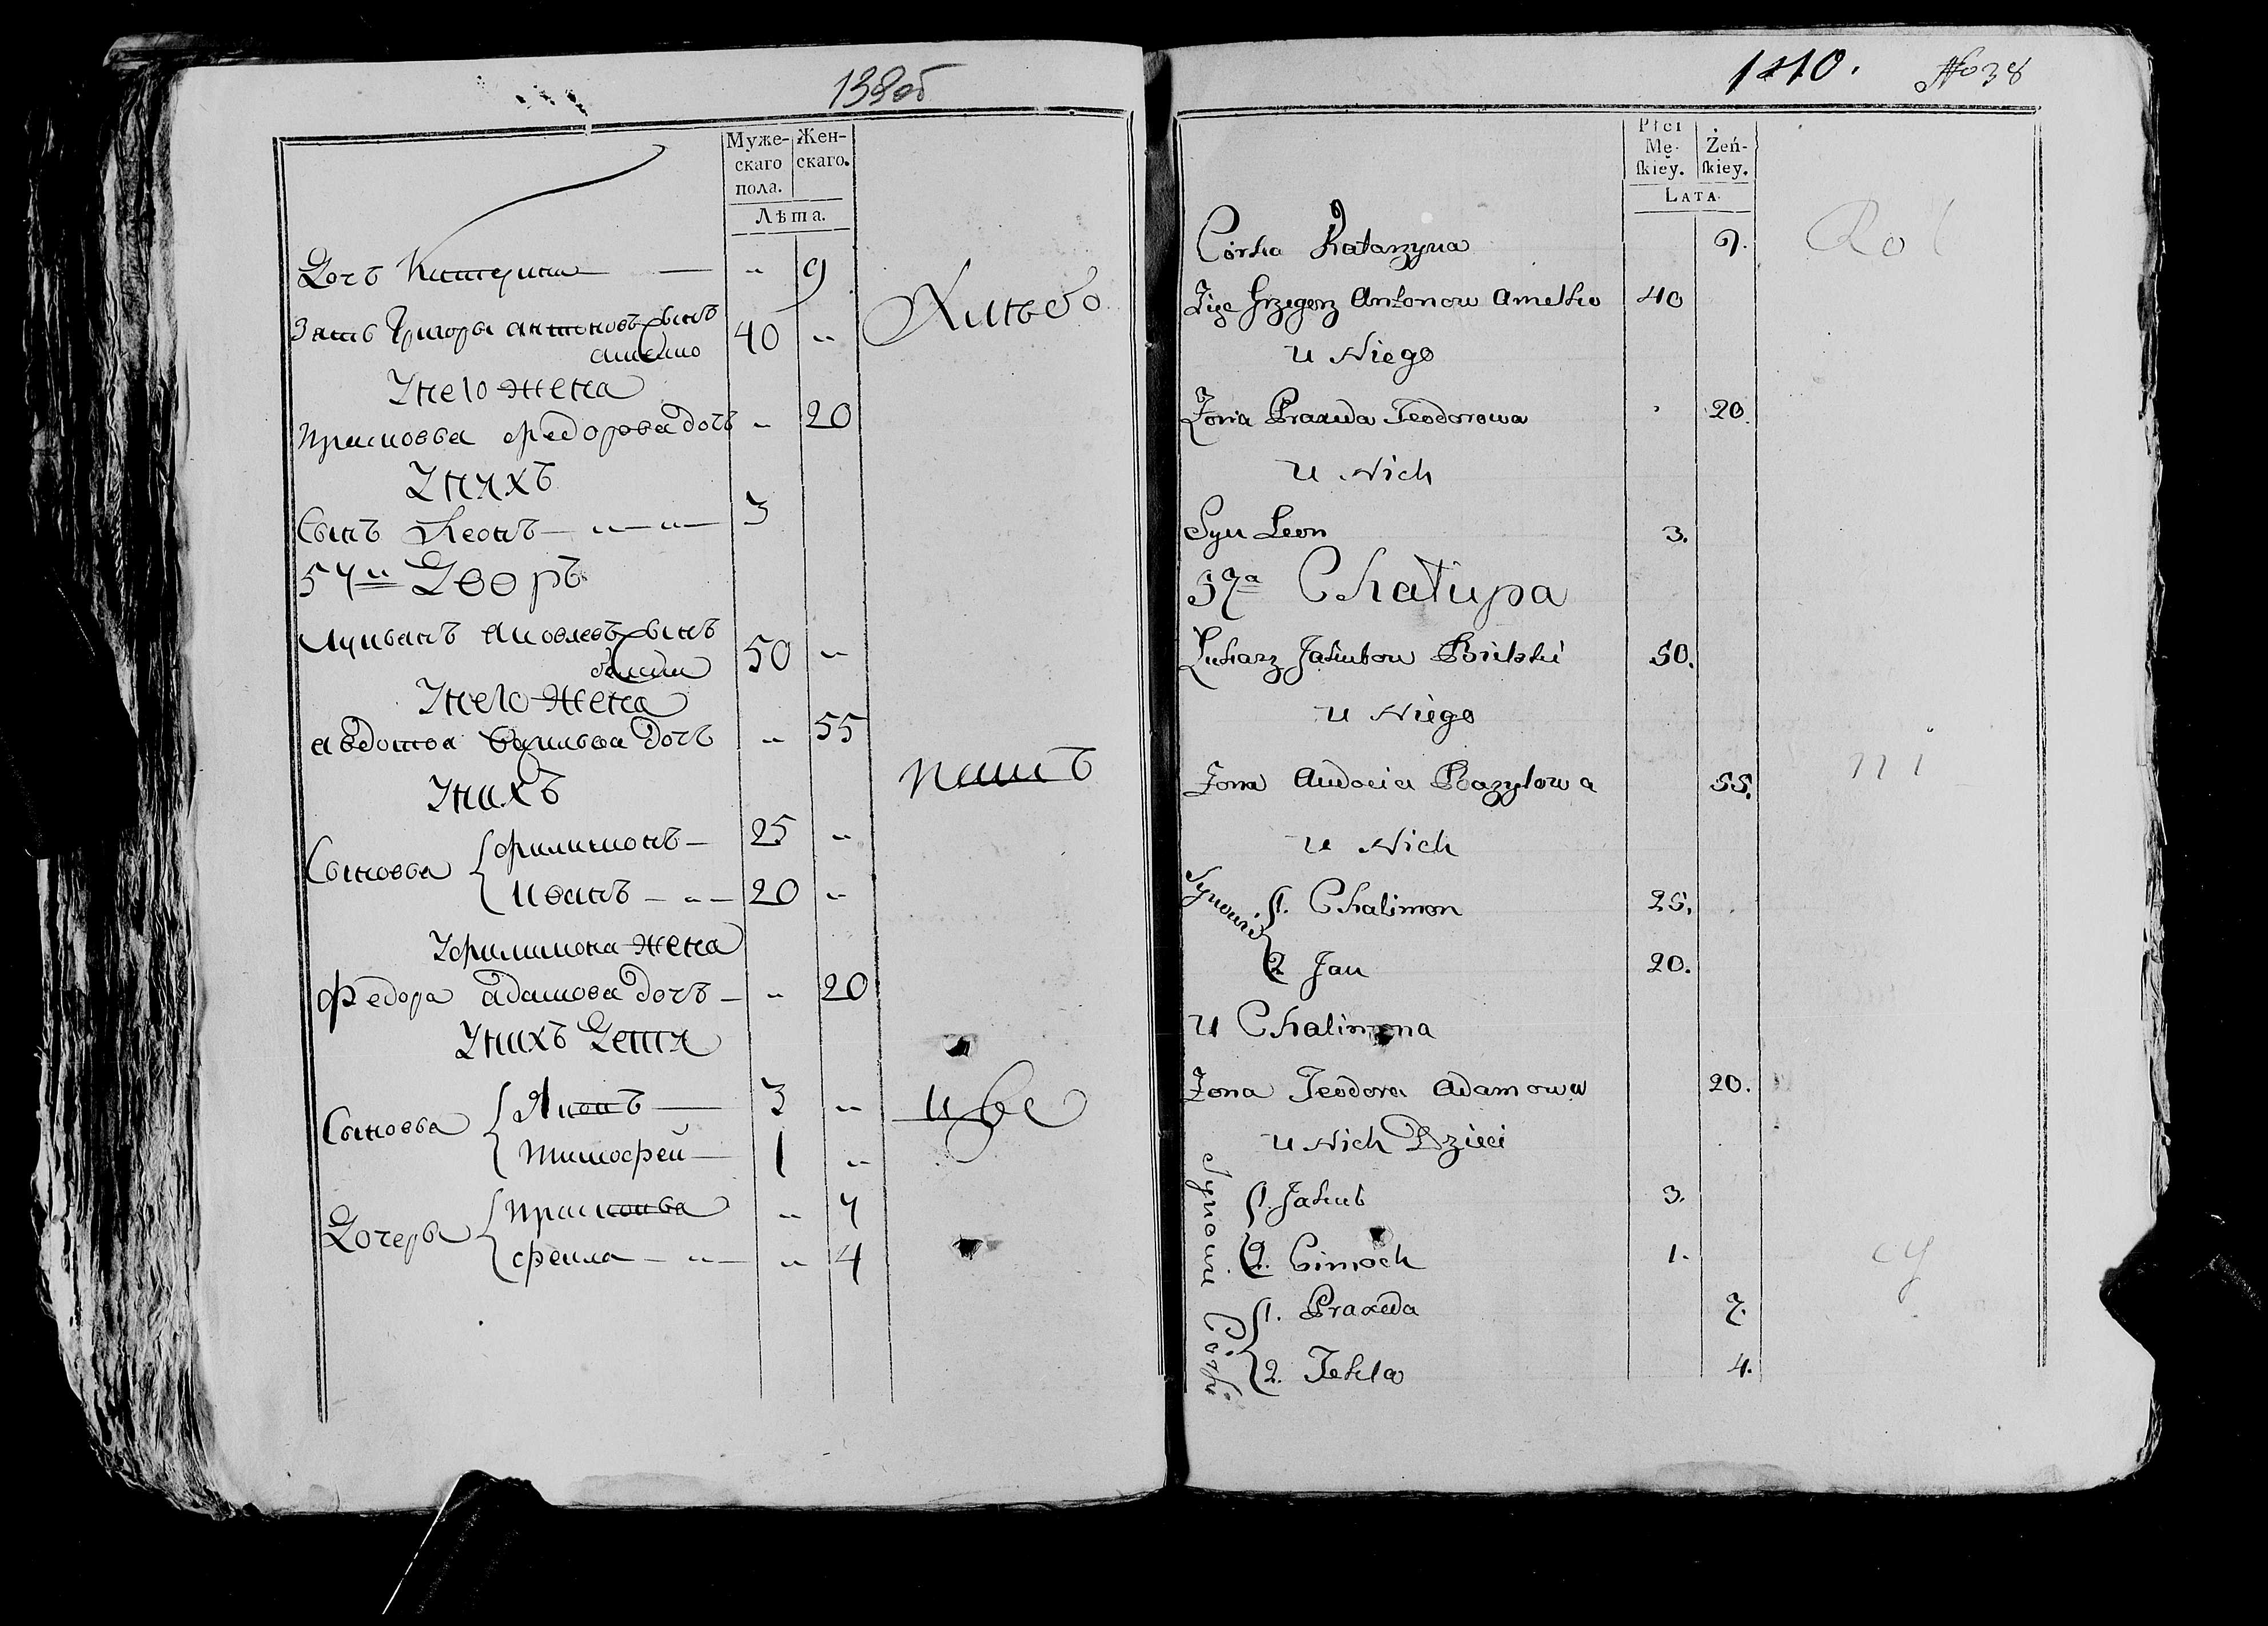 139об
Муже-
скаго
пола.
Жен-
скаго.
Лѣта.
Дочь Катерина — — „ 9
Зять Григоры антоновъ сынъ 40 „
амелко
Унего жена
прасковья федорова дочъ „ 20
Унихъ
Сынъ Леонъ — „ — „ — 3
57й Дворъ
лукьянъ яковлевъ сынъ 50 „
Унего жена
авдотья васильева дочъ „ 55
Унихъ
Сыновья { филимонъ — 25 „
иванъ — „ — 20 „
Уфилимона жена
федора адамова дочъ — „ 20
Унихъ Дети
Сыновья { Яковъ — 3 „
тимофей — 1 „
Дочеры { прасковья „ 7
фекла — „ — „ 4
Хлѣбо
пашъ
цы
1410. No 38
Płci
Mę-
skiey.
Żeń-
skiey.
LATA.
Córka Katarzyna 9.
Zięć Grzegorz Antonow Amelko 40
u Niego
Żona Praxeda Teodorowa 20.
u Nich
Syn Leon 3.
57a Chałupa
Łukasz Jakubow Bielski 50.
u Niego
Żona Audocia Bazylowa 55.
u Nich
Synowie { 1. Chalimon 25.
2. Jan 20.
u Chalimona
Żona Teodora Adamowa 20.
u Nich Dzieci
Synowie { 1. Jakub 3.
2. Cimoch 1.
Córki { 1. Praxeda 7.
2. Tekla 4.
Rol
ni
cy